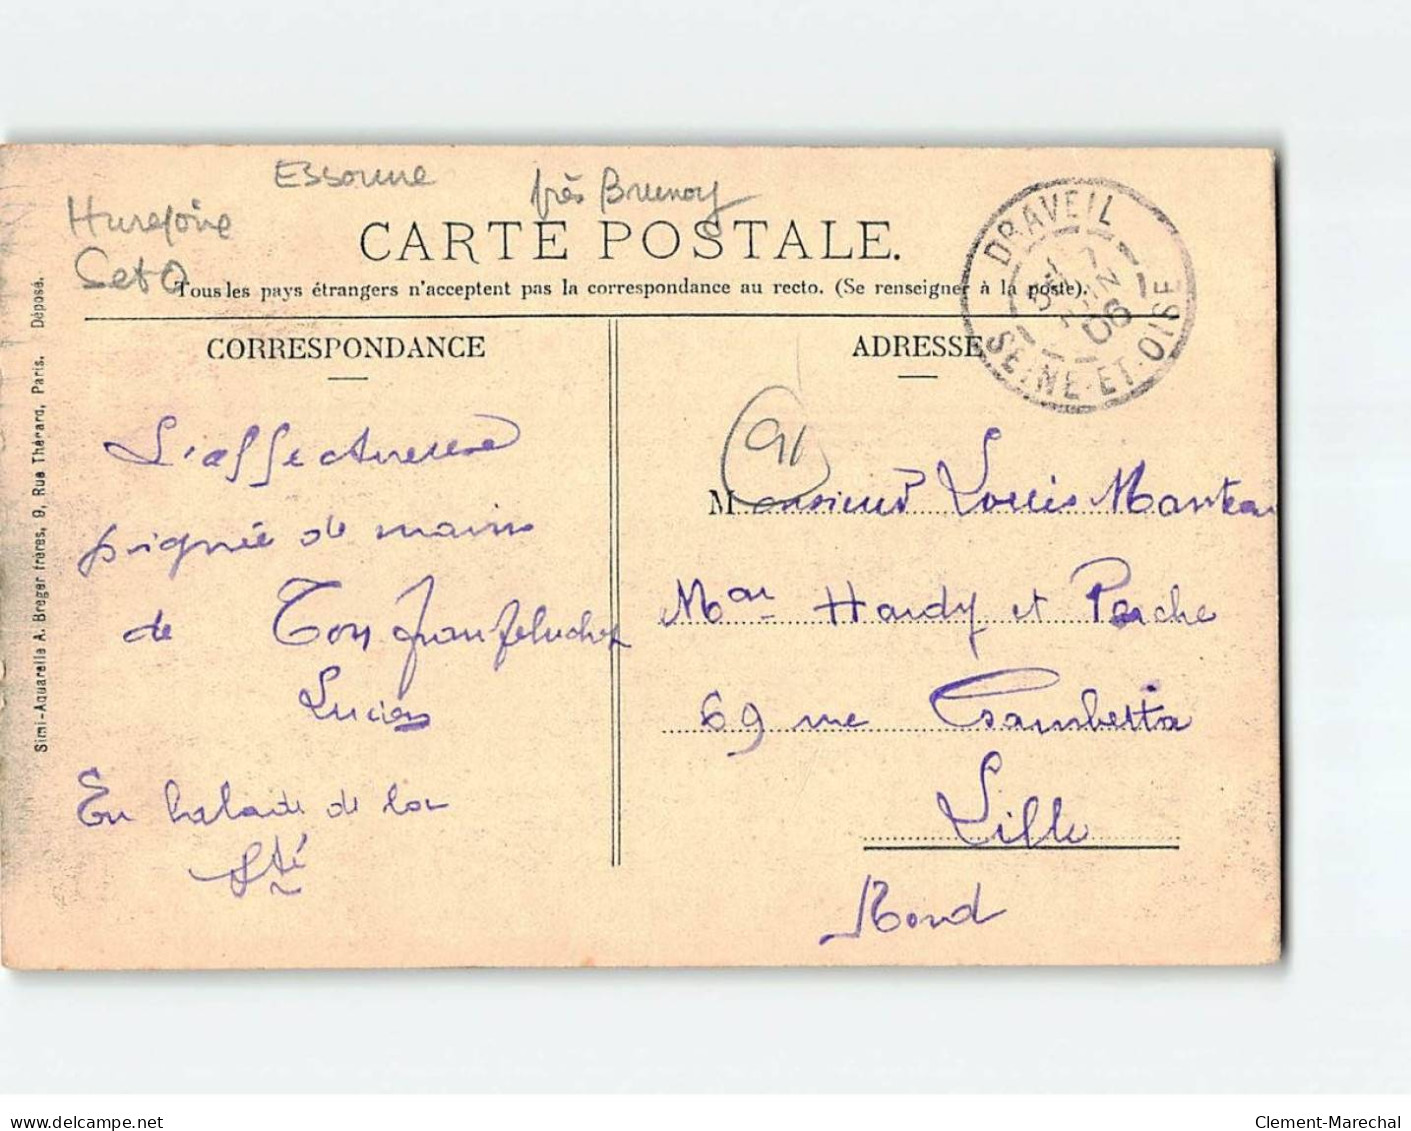 Essonne
près Brunoy
Set O
CARTE POSTALE.
Tous les pays étrangers n'acceptent pas la correspondance au recto. (Se renseigner à la poste).
DRAVEIL
7
JUIN
06
SEINE-ET-OISE
CORRESPONDANCE
ADRESSE
91
L'affectueuse
poignée de mains
de Ton
Lucien
En balade de la
Sté
Monsieur Louis Manteau
Mon Hardy et Perche
69 rue Gambetta
Lille
Nord
Simi-Aquarelle A. Breger frères, 9, Rue Thénard, Paris. Déposé.
www.delcampe.net
Clement-Marechal